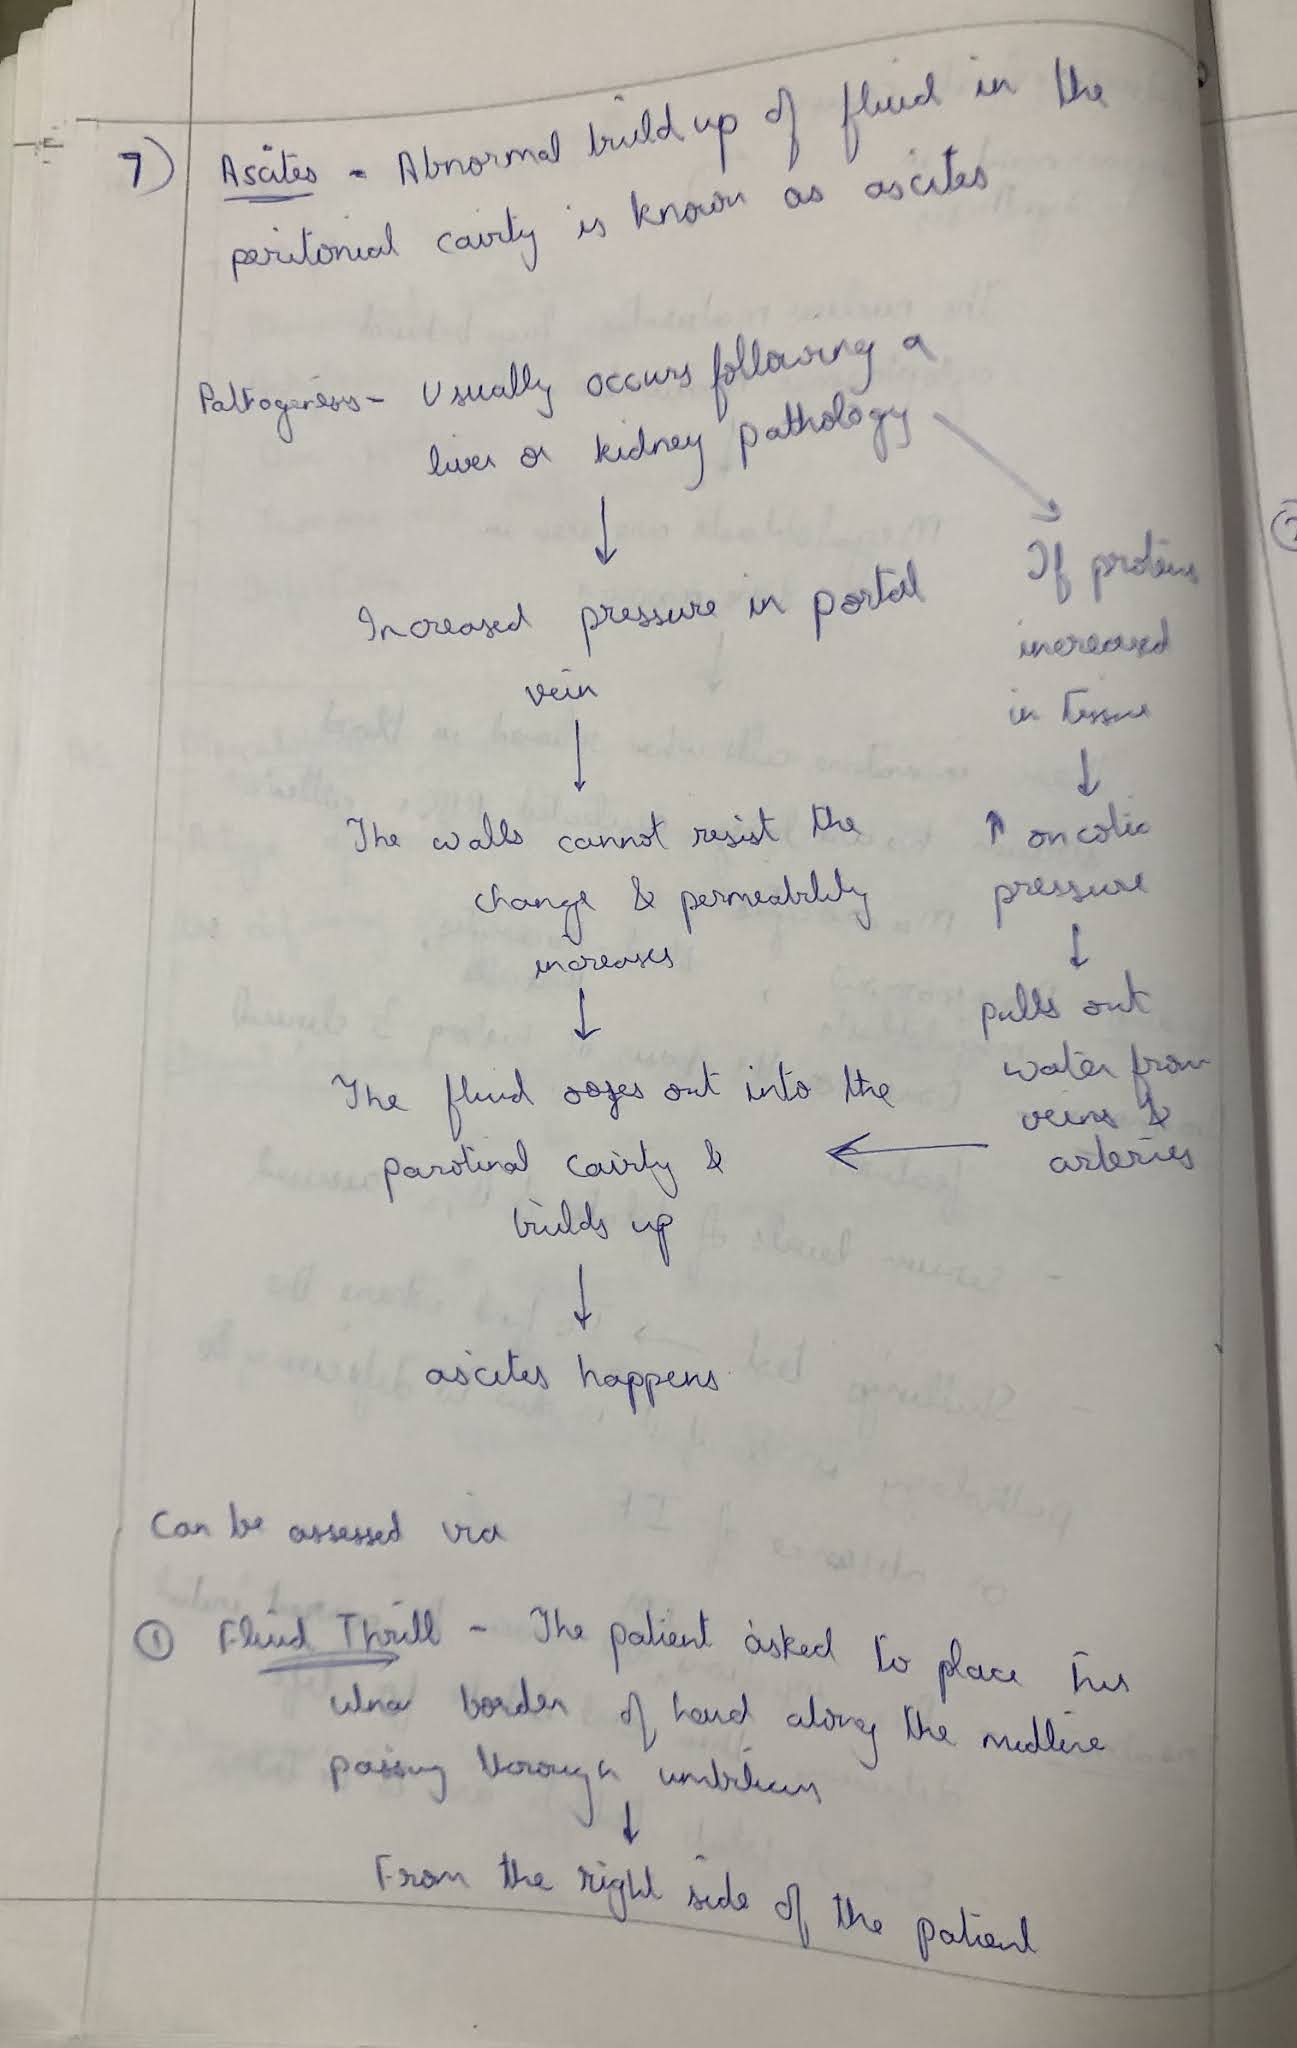 7) Ascites - Abnormal build up of fluid in the
peritonial cavity is known as ascites
Pathogenesis - Usually occurs following a
liver or kidney pathology
↓
Increased pressure in portal
vein
↓
The walls cannot resist the
change & permeability
increases
↓
The fluid oozes out into the
parotinal cavity &
builds up
↓
ascites happens
↘
If proteins
increased
in tissue
↓
↑ oncotic
pressure
↓
pulls out
water from
veins &
arteries
←
Can be assessed via
① Fluid Thrill - The patient asked to place his
ulnar border of hand along the midline
passing through umbilicus
↓
From the right side of the patient